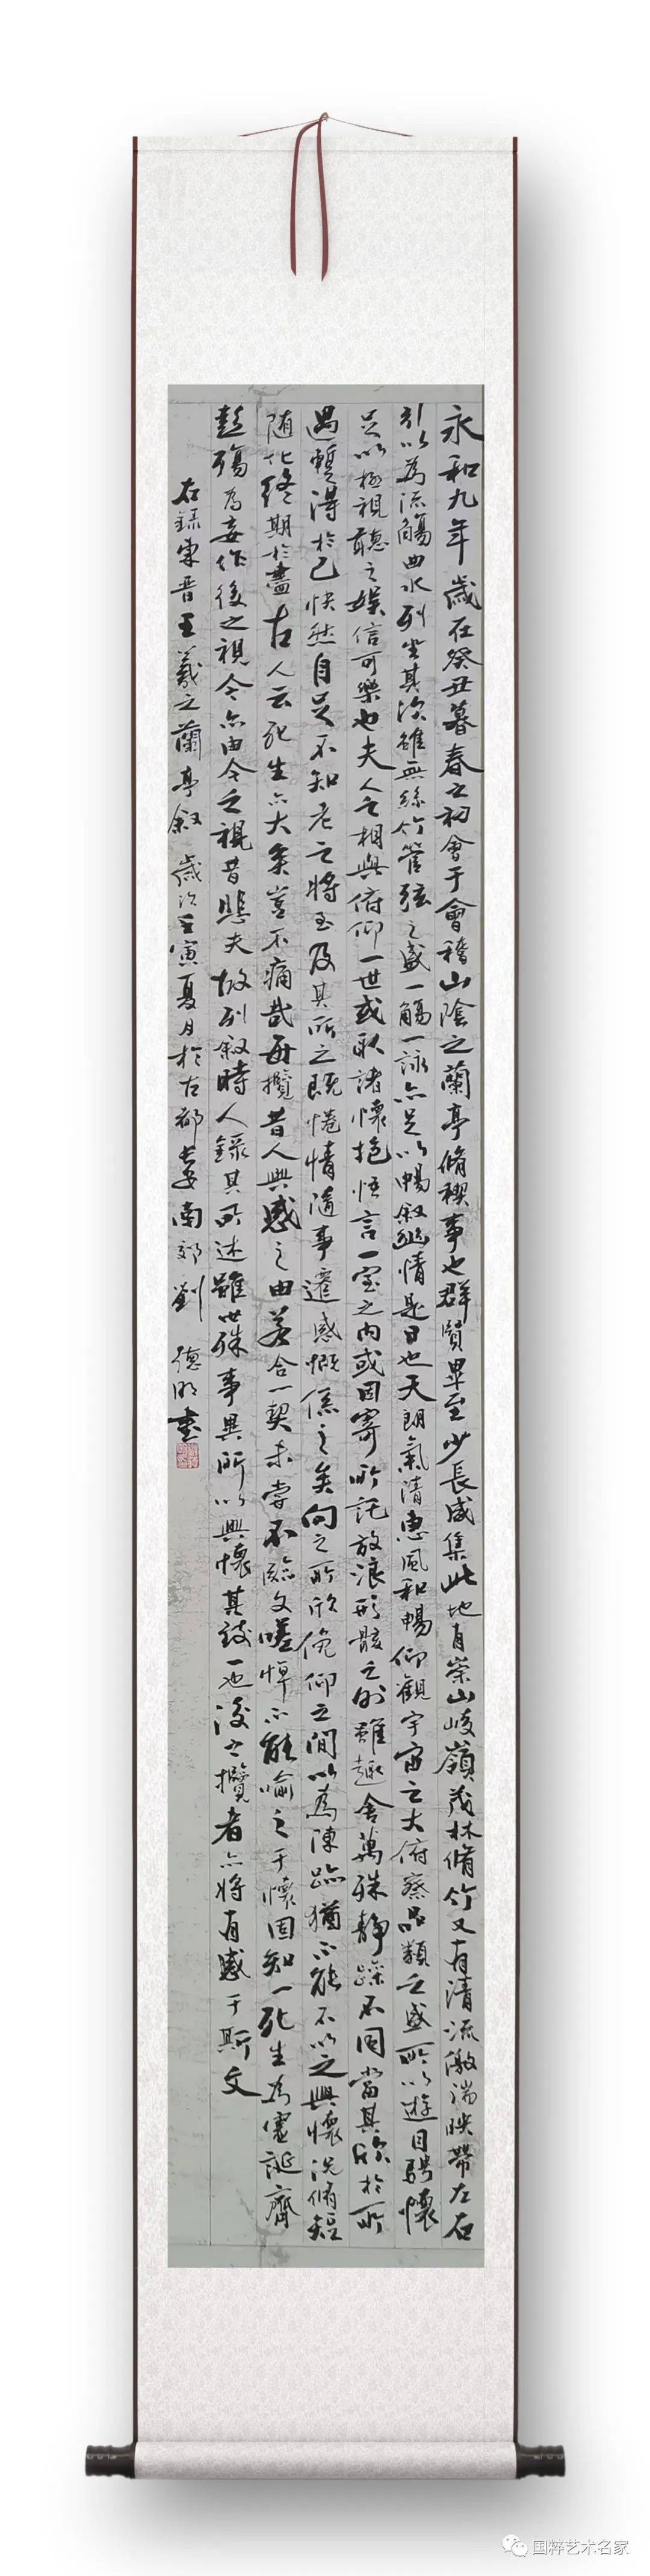 永和九年歲在癸丑暮春之初會于會稽山陰之蘭亭脩稧事也群賢畢至少長咸集此地有崇山峻嶺茂林脩竹又有清流激湍暎帶左右
引以為流觴曲水列坐其次雖無絲竹管弦之盛一觴一詠亦足以暢叙幽情是日也天朗氣清惠風和暢仰觀宇宙之大俯察品類之盛所以遊目騁懷
足以極視聽之娛信可樂也夫人之相與俯仰一世或取諸懷抱悟言一室之內或因寄所託放浪形骸之外雖趣舍萬殊靜躁不同當其欣於所
遇暫得於己快然自足不知老之將至及其所之既惓情隨事遷感慨係之矣向之所欣俛仰之間以為陳迹猶不能不以之興懷況脩短
随化終期於盡古人云死生亦大矣豈不痛哉每攬昔人興感之由若合一契未嘗不臨文嗟悼不能喻之于懷固知一死生為虛誕齊
彭殤為妄作後之視今亦由今之視昔悲夫故列叙時人錄其所述雖世殊事異所以興懷其致一也後之攬者亦將有感于斯文
右錄東晋王羲之蘭亭叙 歲次壬寅夏月於古都長安南郊劉 德明書
国粹艺术名家